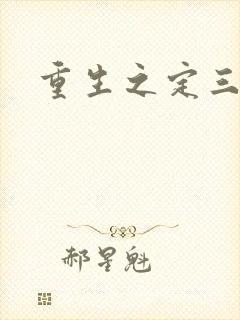 重生之定三
郝星魁